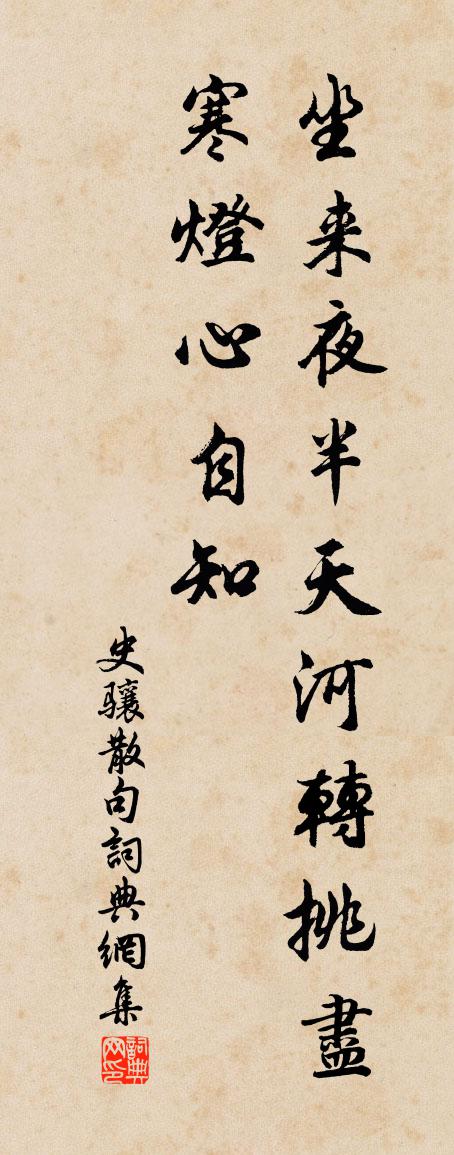 坐来夜半天河轉挑盡
寒燈心自知
史驤散句詞典網集
詞典网印